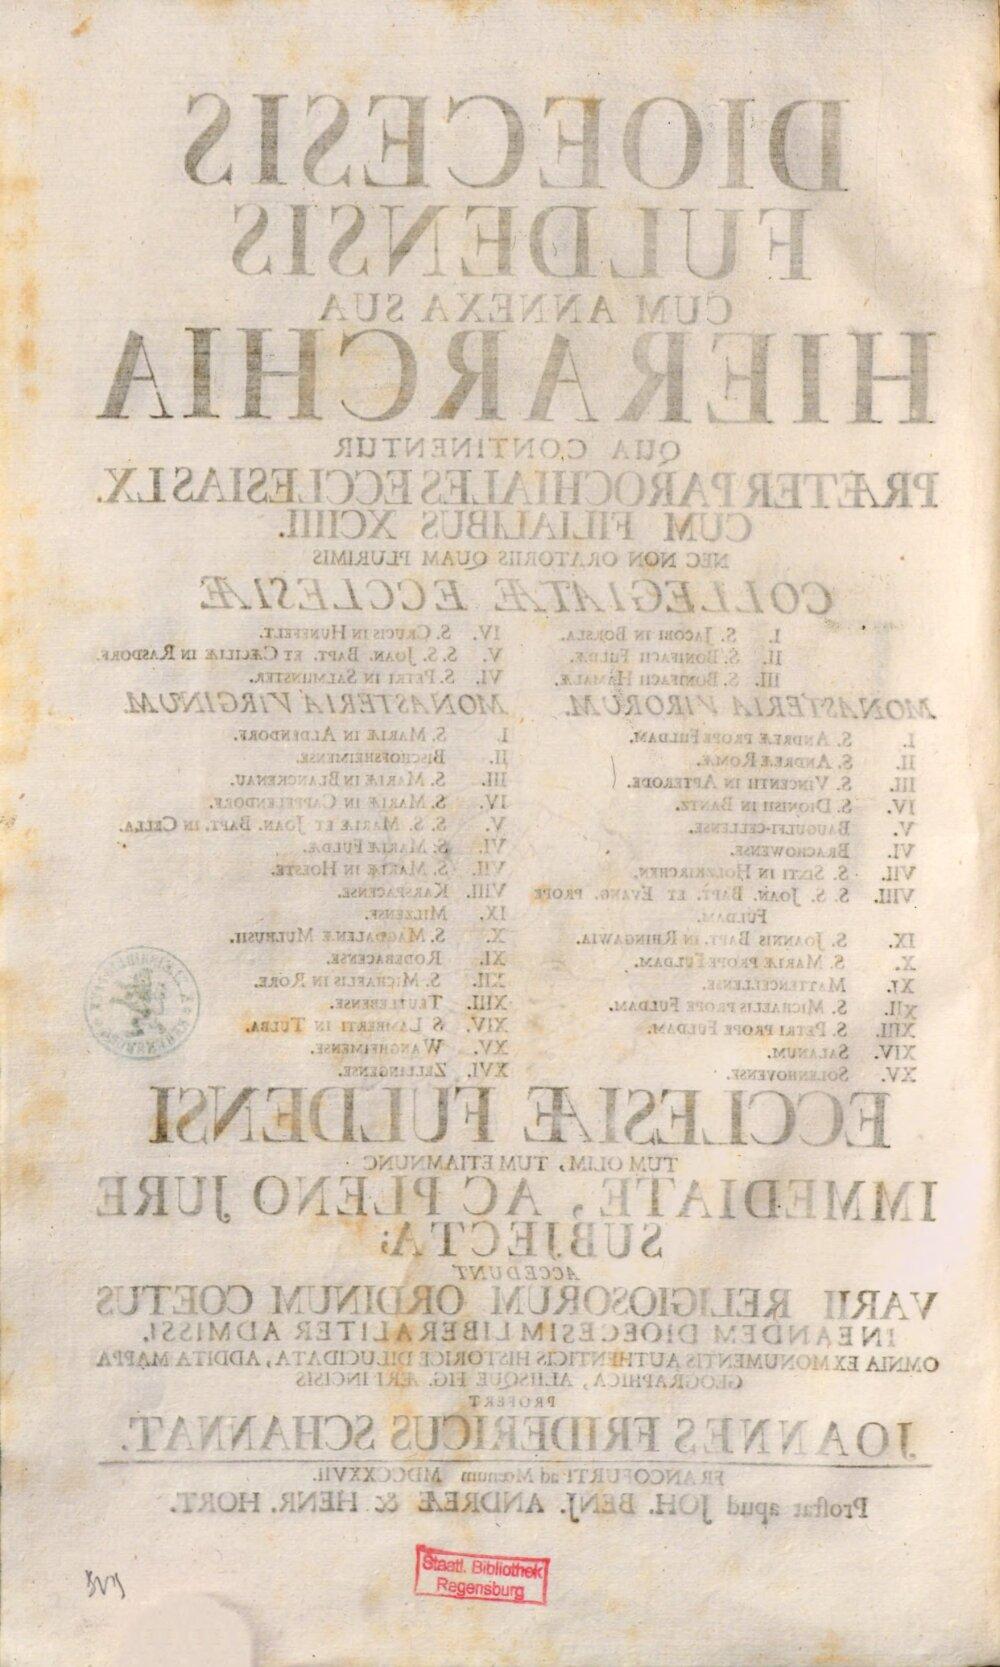 DIOECESIS
FULDENSIS
CUM ANNEXA SUA
HIERARCHIA
QUA CONTINENTUR
PRÆTER PAROCHIALES ECCLESIAS LX.
CUM FILIALIBUS XCIIII.
NEC NON ORATORIIS QUAM PLURIMIS
COLLEGIATÆ ECCLESIÆ
I. S. JACOBI IN BORSLA.
II. S. BONIFACII FULDÆ.
III. S. BONIFACII HAMALÆ.
IV. S. CRUCIS IN HUNEFELT.
V. S. S. JOAN. BAPT. ET CÆCILIÆ IN RASDORF.
VI. S. PETRI IN SALMUNSTER.
MONASTERIA VIRORUM.
I. S. ANDREÆ PROPE FULDAM.
II. S. ANDREÆ ROMÆ.
III. S. VINCENTII IN APTERODE.
IV. S. DIONISII IN BANTZ.
V. BAUGULFI-CELLENSE.
VI. BRACHOWENSE.
VII. S. SIXTI IN HOLZKIRCHEN.
VIII. S. S. JOAN. BAPT. ET EVANG. PROPE
FULDAM.
IX. S. JOANNIS BAPT. IN RHINGAWIA.
X. S. MARIÆ PROPE FULDAM.
XI. MATTENCELLENSE.
XII. S. MICHAELIS PROPE FULDAM.
XIII. S. PETRI PROPE FULDAM.
XIV. SALANUM.
XV. SOLENHOVENSE.
MONASTERIA VIRGINUM.
I. S. MARIÆ IN ALDENDORF.
II. BISCHOFSHEIMENSE.
III. S. MARIÆ IN BLANCKENAU.
IV. S. MARIÆ IN CAPPELENDORF.
V. S. S. MARIÆ ET JOAN. BAPT. IN CELLA.
VI. S. MARIÆ FULDÆ.
VII. S. MARIÆ IN HOESTE.
VIII. KARSPACENSE.
IX. MILZENSE.
X. S. MAGDALENÆ MULHUSII.
XI. RODEBACENSE.
XII. S. MICHAELIS IN RORE.
XIII. TEUTLEBENSE.
XIV. S LAMBERTI IN TULBA.
XV. WANGHEIMENSE.
XVI. ZELLINGENSE.
ECCLESIÆ FULDENSI
TUM OLIM, TUM ETIAMNUNC
IMMEDIATE, AC PLENO JURE
SUBJECTA;
ACCEDUNT
VARII RELIGIOSORUM ORDINUM COETUS
IN EANDEM DIOECESIM LIBERALITER ADMISSI,
OMNIA EX MONUMENTIS AUTHENTICIS HISTORICE DILUCIDATA, ADDITA MAPPA
GEOGRAPHICA, ALIISQUE FIG. ÆRI INCISIS
PROFERT
JOANNES FRIDERICUS SCHANNAT.
FRANCOFURTI ad Mœnum MDCCXXVII.
Prostat apud JOH. BENJ. ANDREÆ & HENR. HORT.
Staatl. Bibliothek
Regensburg